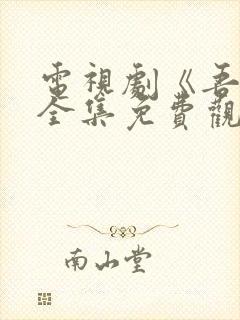 電視劇《吾
全集免費觀
南山堂